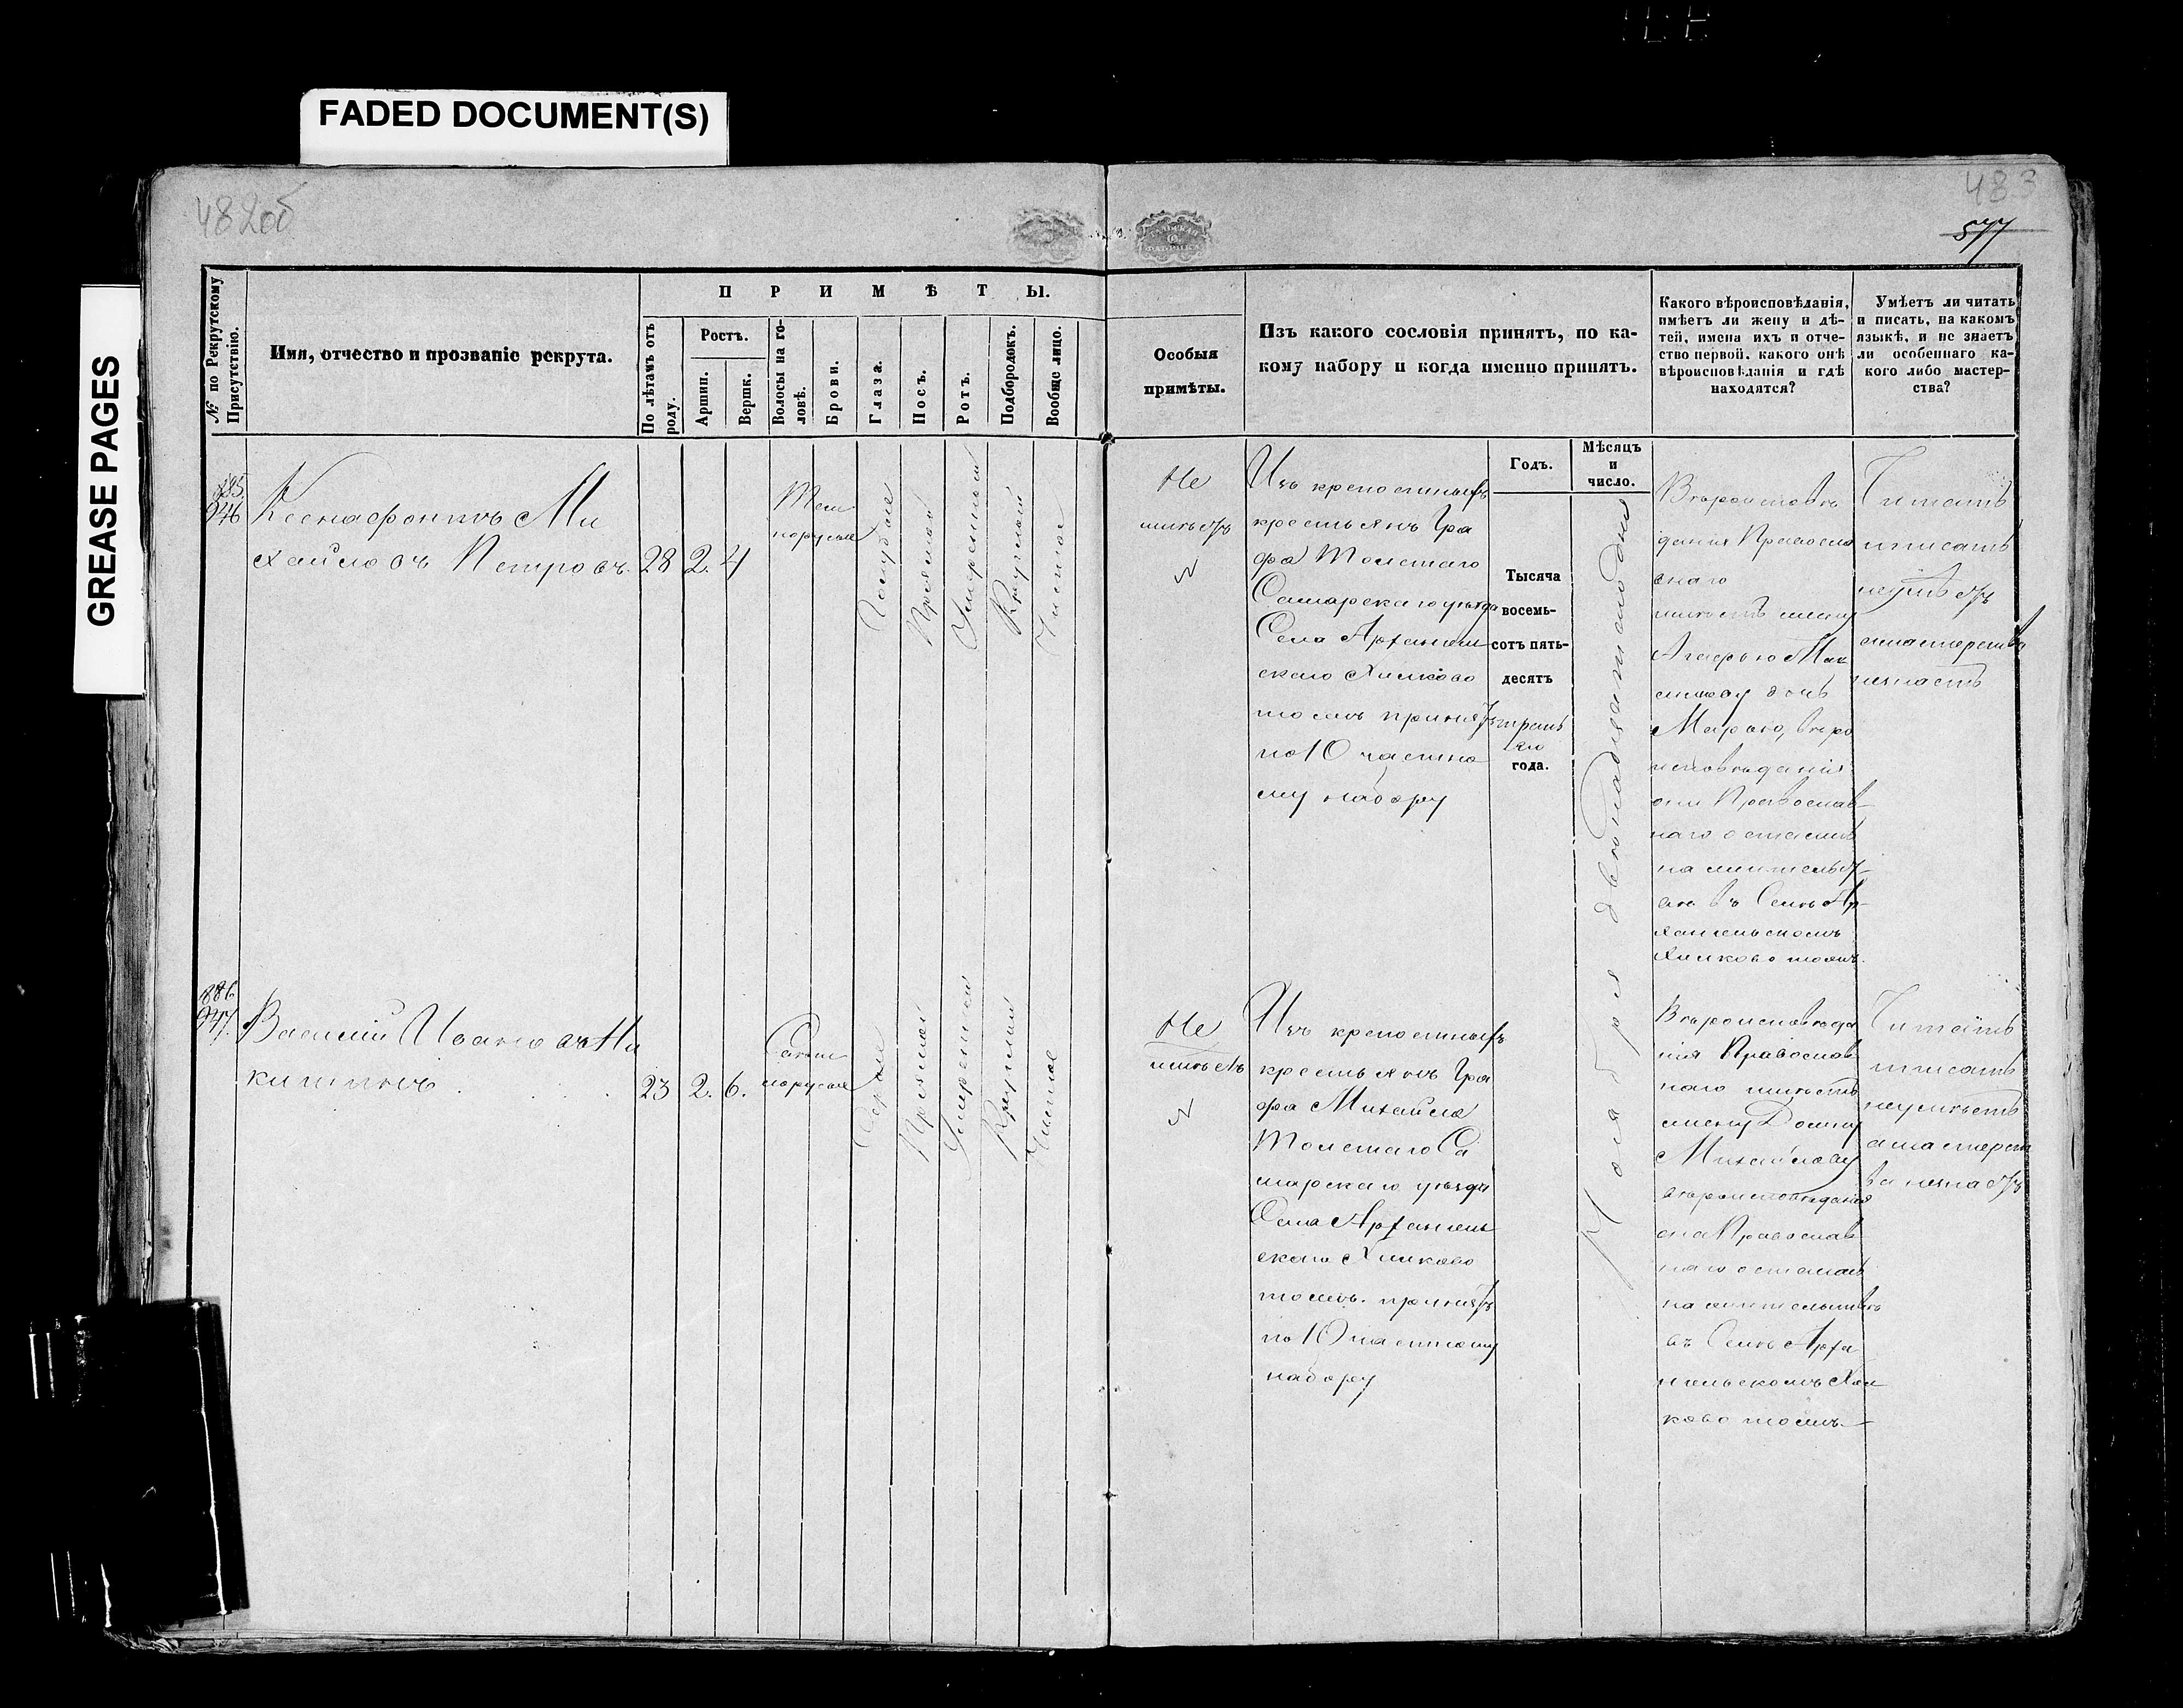 FADED DOCUMENT(S)
GREASE PAGES
482об
483
577
№ по Рекрутскому Присутствію.
Имя, отчество и прозваніе рекрута.
ПРИМѢТЫ.
По лѣтамъ отъ роду.
Ростъ.
Аршин.
Вершк.
Волосы на головѣ.
Брови.
Глаза.
Носъ.
Ротъ.
Подбородокъ.
Вообще лицо.
Особыя
примѣты.
Изъ какого сословія принятъ, по ка-
кому набору и когда именно принятъ.
Какого вѣроисповѣданія,
имѣетъ ли жену и дѣ-
тей, имена ихъ и отче-
ство первой, какого онѣ
вѣроисповѣданія и гдѣ
находятся?
Умѣетъ ли читать
и писать, на какомъ
языкѣ, и не знаетъ
ли особеннаго ка-
кого либо мастер-
ства?
Годъ.
Мѣсяцъ
и
число.
946
Ксенафонтъ Ми
хайловъ Петровъ.
28 2. 4
Тем
норусые
Голубые
Прямой
Умеренный
Круглый
Чистое
Не
имѣетъ
Изъ крепостныхъ
крестьянъ Гра
фа Толстаго
Самарскаго уѣзда
Села Архангель
скаго Хилково
тожъ принятъ
по 10 частно
му набору
Тысяча
восемь-
сотъ пять-
десятъ
треть
яго
года.
Ноября двенадцатаго дня
Вѣроисповѣ
данія Правосла
внаго
имѣетъ жену
Агафью Мак
симову дочь
Марью, вѣро
исповѣданія
они Православ-
наго остались
на жительст-
вѣ въ Селѣ Ар-
хангельскомъ
Хилково тожъ.
Читать
писать
неумѣетъ
мастерства
незнаетъ
886
947.
Василій Ивановъ Ни
китинъ
23 2. 6.
Светло
норусые
Серые
Прямой
Умеренный
Круглый
Чистое
Не
имѣетъ
Изъ крепостныхъ
крестьянъ Гра
фа Михайла
Толстаго Са
марскаго уѣзда
Села Архангель
скаго Хилково
тожъ. принятъ
по 10 частному
набору
Вѣроисповѣда
нія Православ
наго имѣетъ
жену Домну
Михайлову
вѣроисповѣданія
она Православ
наго осталась
на жительствѣ
въ Селѣ Арха
нгельскомъ Хил
ково тожъ
Читать
писать
неумѣетъ
а мастерст
ва незнаетъ